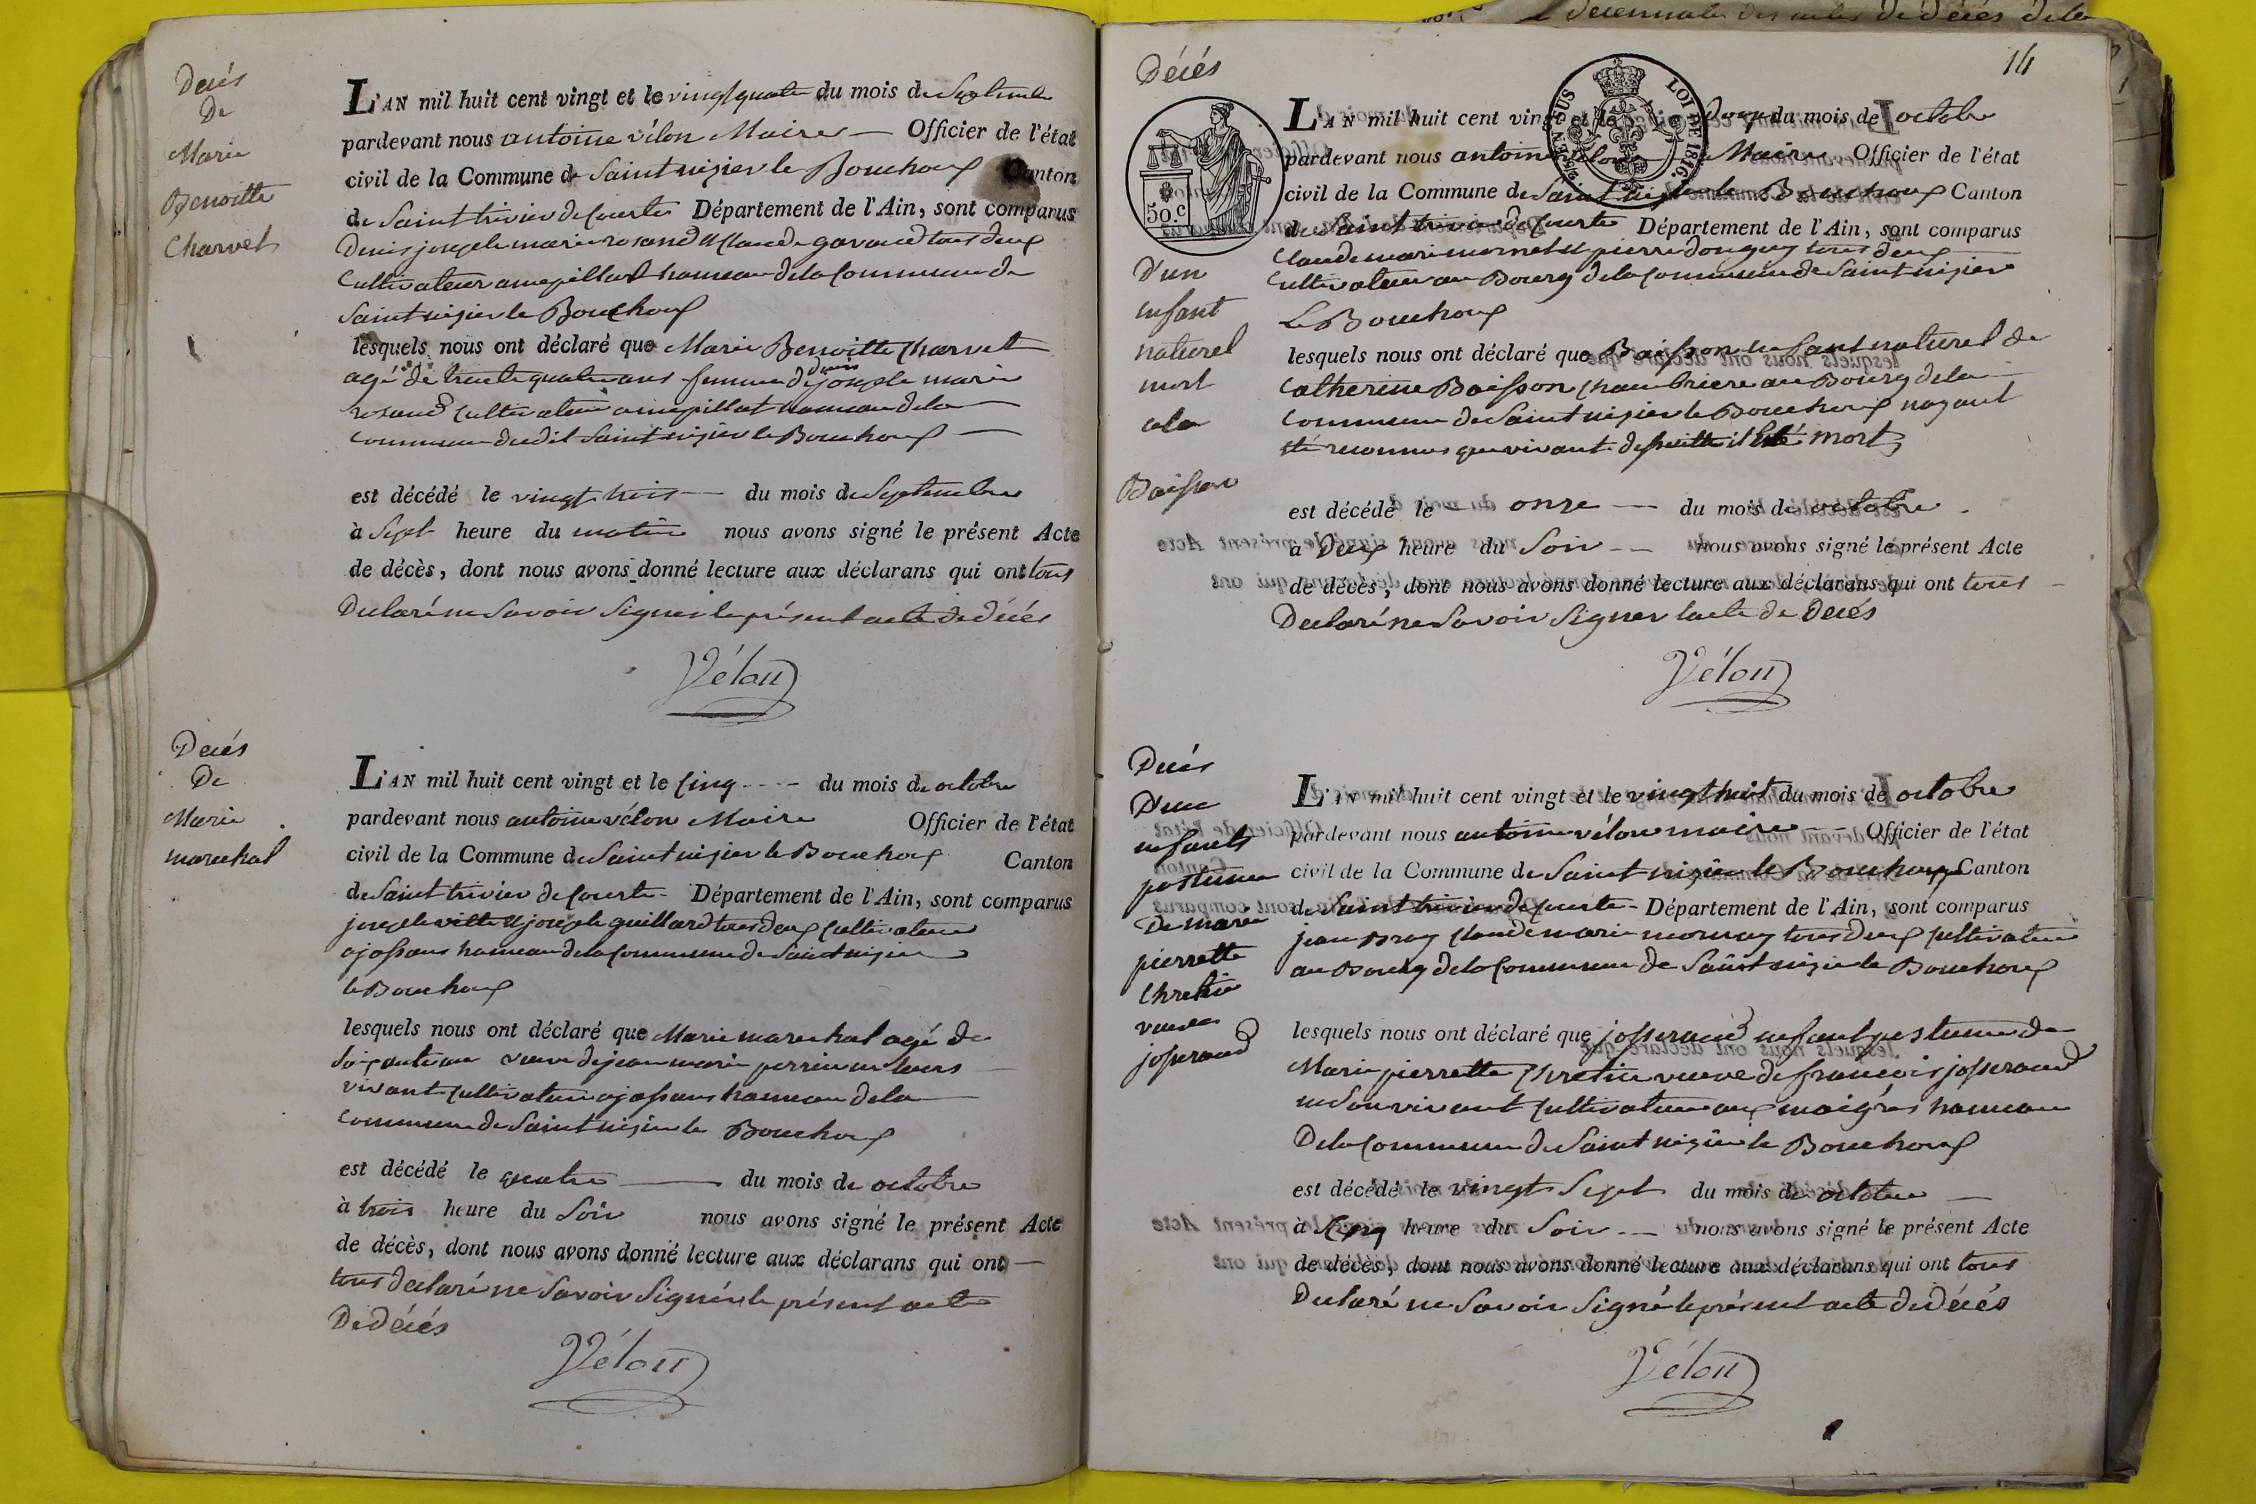 Décés
De
Marie
Benoitte
Charvet
L'AN mil huit cent vingt et le vingt quatre du mois de Septembre
pardevant nous antoine vélon Maire — Officier de l'état
civil de la Commune de Saint nizier le Bouchoux Canton
de Saint trivier de Courtes Département de l'Ain, sont comparus
Denis joseph marie rosand et Claude gavand tous deux
Cultivateur a hameau de la Commune de
Saint nizier le Bouchoux
lesquels nous ont déclaré que Marie Benoitte Charvet
agé de trente quatre ans femme de denis joseph marie
rosand Cultivateur a hameau de la
commune du dit Saint nizier le Bouchoux —
est décédé le vingt trois — du mois de Septembre
à Sept heure du matin nous avons signé le présent Acte
de décès, dont nous avons donné lecture aux déclarans qui ont tous
Declaré ne Savoir Signer le présent acte de décés
Vélon
Decés
De
Marie
marechal
L'AN mil huit cent vingt et le Cinq ---- du mois de octobre
pardevant nous antoine vélon Maire Officier de l'état
civil de la Commune de Saint nizier le Bouchoux Canton
de Saint trivier de Courte - Département de l'Ain, sont comparus
joseph vitte et joseph guillard tous deux Cultivateur
a jossans hameau de la Commune de Saint nizier
le Bouchoux
lesquels nous ont déclaré que Marie marechal agé de
Soixante ans veuve de jean marie perrin
vivant Cultivateur a jossans hameau de la
Commune de Saint nizier le Bouchoux
est décédé le quatre — du mois de octobre
à trois heure du Soir nous avons signé le présent Acte
de décès, dont nous avons donné lecture aux déclarans qui ont —
tous declaré ne Savoir Signér le présent acte
De décés
Vélon
14
Décés
D'un
enfant
naturel
mort
a la
Boisson
50.C
LOI DE 1816.
L'AN mil huit cent vingt et le Douze du mois de octobre
pardevant nous antoine vélon Maire Officier de l'état
civil de la Commune de Saint nizier le Bouchoux Canton
de Saint trivier de Courte Département de l'Ain, sont comparus
Claude marie mornet et pierre donguy tous deux
Cultivateur au Bourg de la Commune de Saint nizier
Le Bouchoux
lesquels nous ont déclaré que Boisson enfant naturel de
Catherine Boisson Chambriere au Bourg de la
Commune de Saint nizier le Bouchoux nayant
été reconnus que vivant de suitte il Est mort
est décédé le — onze — du mois de octobre
à Deux heure du Soir — nous avons signé le présent Acte
de décès, dont nous avons donné lecture aux déclarans qui ont tous
Declaré ne Savoir Signer lacte de Decés
Vélon
Decés
D'un
enfants
postume
De marie
pierrette
Chretin
veuve
josserand
L'AN mil huit cent vingt et le vingt huit du mois de octobre
pardevant nous antoine vélon maire — Officier de l'état
civil de la Commune de Saint nizier le Bouchoux Canton
de Saint trivier de Courte - Département de l'Ain, sont comparus
jean Claude marie mornay tous deux Cultivateur
au Bourg de la Commune de Saint nizier le Bouchoux
lesquels nous ont déclaré que josserand enfant postume de
Marie pierrette Chretin veuve de francois josserand
en Son vivant Cultivateur aux maigres hameau
De la Commune de Saint nizier le Bouchoux
est décédé le vingt Sept du mois de octobre —
à Cinq heure du Soir — nous avons signé le présent Acte
de décès, dont nous avons donné lecture aux déclarans qui ont tous
Declaré ne Savoir Signé le présent acte de décés
Vélon